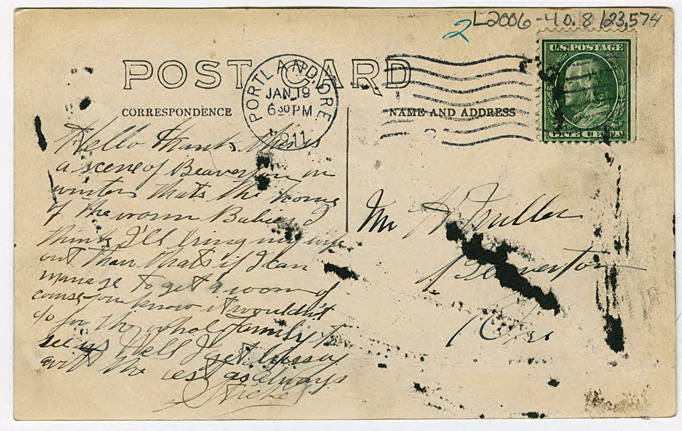 2 L2006-40.8 123,574
POST CARD
U.S. POSTAGE
PORTLAND, ORE
JAN 19
6 30 PM
1911
CORRESPONDENCE
NAME AND ADDRESS
Hello Frank this is
a scene of Beaverton in
winter thats the home
of the worm
think I'll bring my wife
out than thats if I can
manage to get a room of
course you know it wouldn't
do for the whole family to
see us Well I get
with the rest as always
Mr
Beaverton
Ore